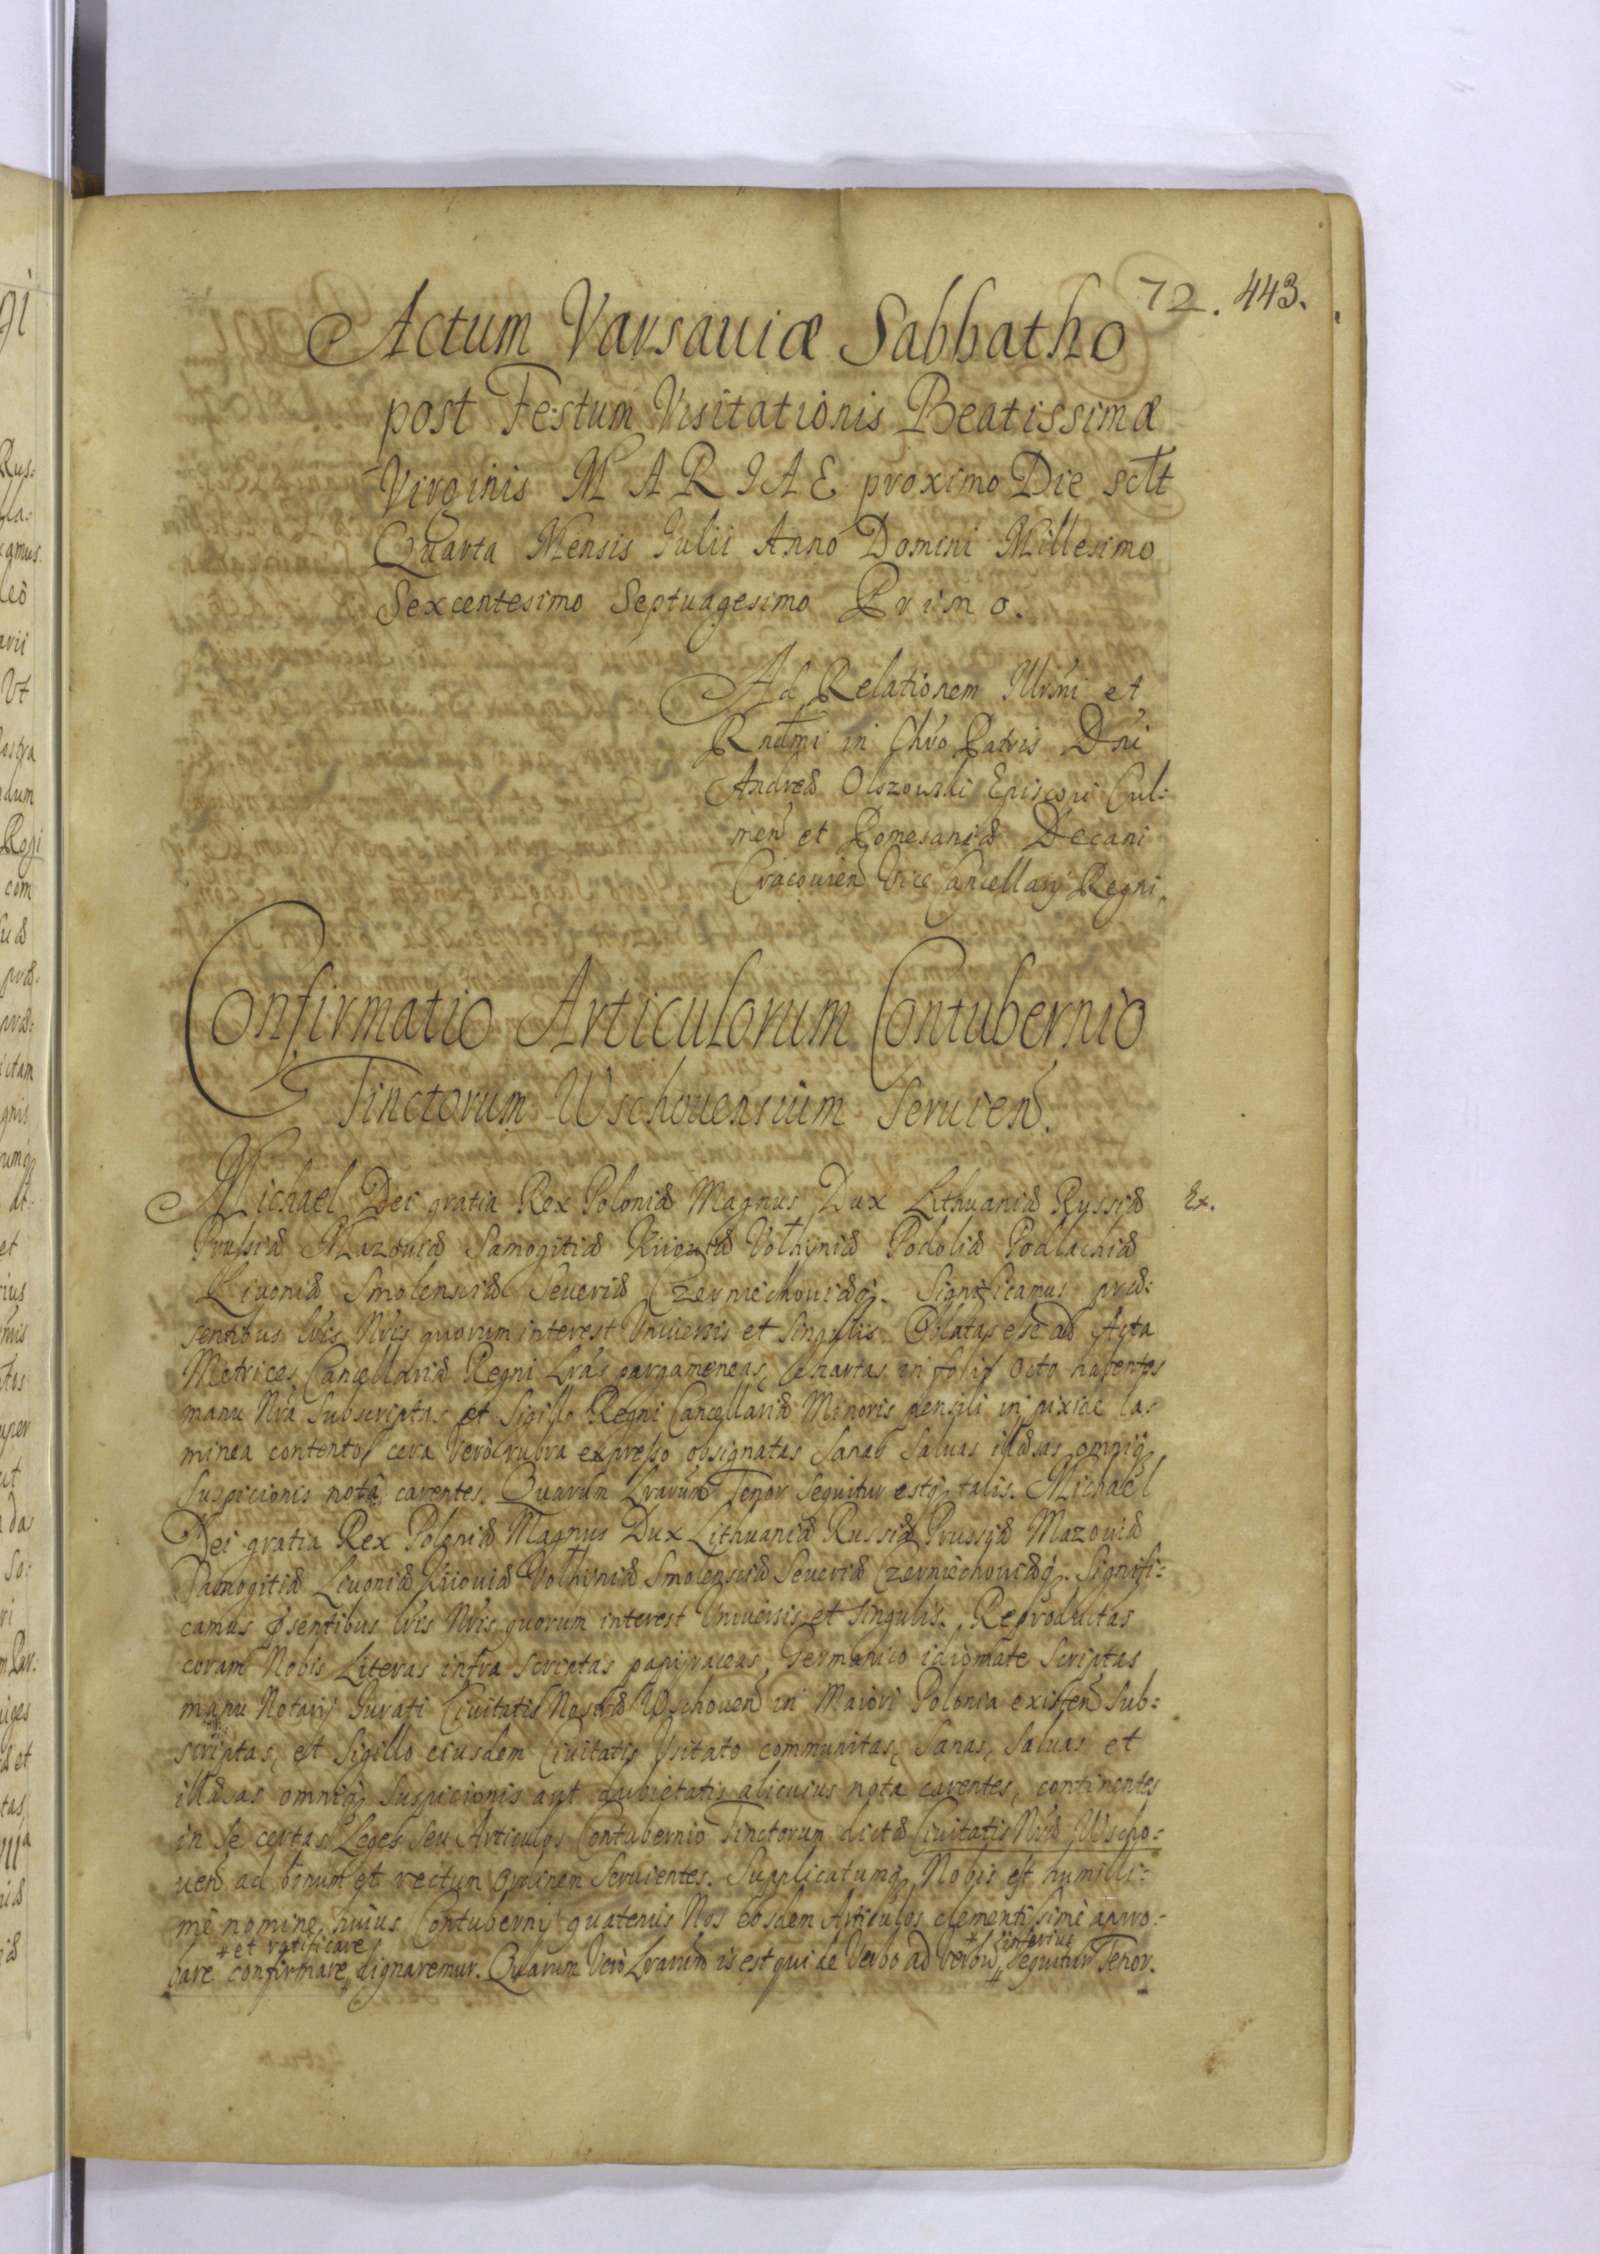 72. 443.
Actum Varsaviæ Sabbatho
post Festum Visitationis Beatissimæ
Virginis MARIAE proximo Die sclt
Quarta Mensis Iulii Anno Domini Millesimo
Sexcentesimo Septuagesimo Primo.
Ad Relationem Illrmi et
Rndmi in Chro Patris Dni
Andreæ Olszowski Episcopi Cul:
men et Pomesaniæ Decani
Cracovien Vice Cancellarij Regni.
Confirmatio Articulorum Contubernio
Tinctorum Wschovensium Servien.
Michael Dei gratia Rex Poloniæ Magnus Dux Lithuaniæ Russiæ
Ex.
Prussiæ Mazoviæ Samogitiæ Kiioviæ Volhyniæ Podoliæ Podlachiæ
Livoniæ Smolensciæ Severiæ Czerniechoviæq. Significamus præ:
sentibus lris Nris quorum interest Universis et singulis. Oblatas esse ad Acta
Metrices Cancellariæ Regni Lras pargameneas, Chartas in folis octo habentes
manu Nra subscriptas et sigillo Regni Cancellariæ Minoris pensili in pixide la:
minea contento, cera vero rubra expresso obsignatas sanas salvas illæsas omniq
suspicionis nota carentes. Quarum Lrarum Tenor sequitur estq talis. Michael
Dei gratia Rex Poloniæ Magnus Dux Lithuaniæ Russiæ Prussiæ Mazoviæ
Samogitiæ Livoniæ Kiioviæ Volhiniæ Smolensciæ Severiæ Czerniechoviæq. Signifi:
camus psentibus lris Nris quorum interest Universis et singulis. Reproductas
coram Nobis Literas infra scriptas papyraceas, Germanico idiomate scriptas
manu Notarij Iurati Civitatis Nostræ Wschoven in Maiori Polonia existen sub:
scriptas, et sigillo eiusdem Civitatis usitato communitas, sanas, salvas et
illæsas omniq suspicionis aut dubietatis alicuius nota carentes, continentes
in se certas Leges seu Articulos Contubernio Tinctorum dictæ Civitatis Nræ Wscho:
ven ad bonum et rectum ordinem servientes. Supplicatumq Nobis est humilli:
me nomine huius Contubernij quatenus Nos eosdem Articulos clementissime appro:
+ et ratificare + inferius
bare confirmare dignaremur. Quarum vero Lrarum is est qui de verbo ad verbum sequitur Tenor.